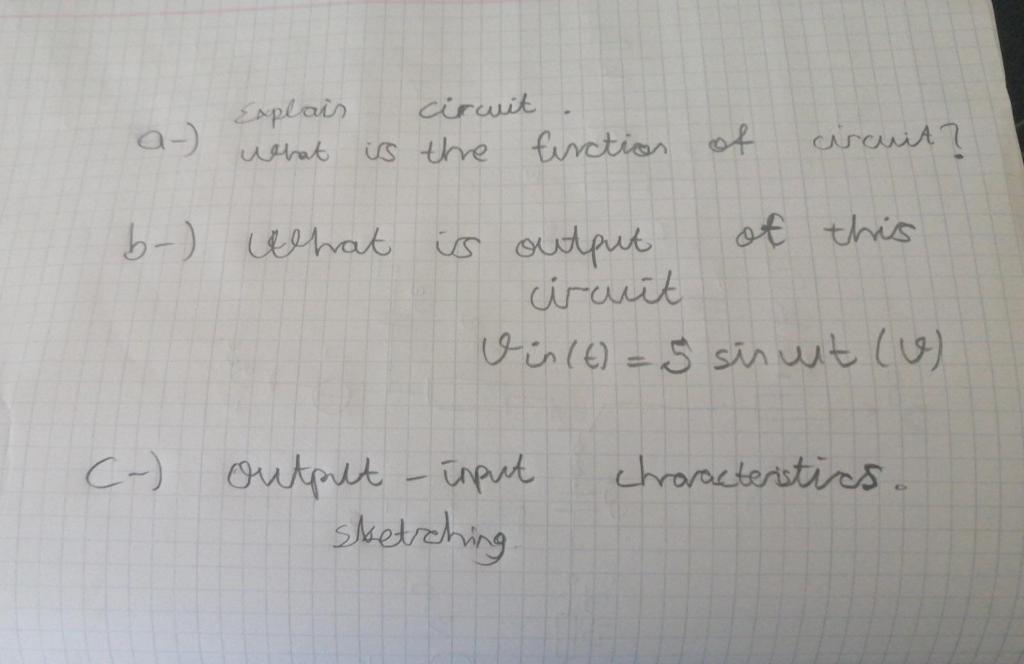 Explain circuit.
a-) what is the function of circuit?
b-) What is output of this
circuit
Vin(t) = 5 sin wt (V)
C-) Output - input characteristics.
sketching